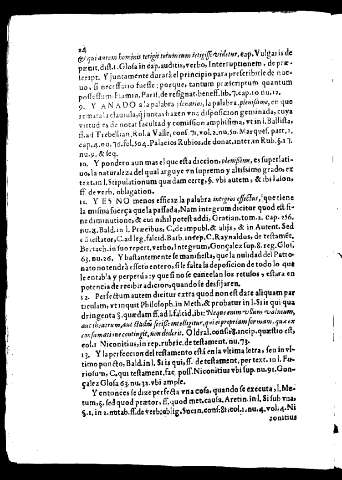 24
& qui autem hominis tetigit testimonium tetigisse videtur, cap. Vulgaris de
præüt, dist. 1. Glosa in cap. auditis, verbo, Interruptionem, de præs-
cript. Y juntamente durarà el principio para prescribirle de nue-
uo, si necessario fuesse; porque, tantum præscriptum quantum
possessum. Flamin. Paris. de resignat. benefi. lib. 7. cap. 10. nu. 12.
9. Y AÑADO a la palabra, plenissimo, en que
se mata la clausula, q̃ juntas hazen vna disposicion geminada, cuya
virtud es de notat facultad y comission amplissima, vt in l. Ballista,
ff. ad Trebellian. Rol. à Valle, conf. 71. vol. 2. nu. 50. Marques. part. 1.
cap. 4. nu. 76. fol. 504. Palacios Rubios, de donat. inter in Rub. §. 17.
nu. 9. & seq.
10. Y pondero aun mas el que esta diccion, plenissime, es superlati-
uo, la naturaleza del qual arguye vn supremo y altissimo grado, ex
text. in l. Stipulationum quædam certę, §. vbi autem, & ibi Iason,
ff. de verb. obligation.
11. Y ES NO menos eficaz la palabra integros effectus, que tiene
la misma fuerça que la passada, Nam integrum dicitur quod est si-
ne diminutione, & cui nihil potest addi, Gratian. tom. 2. cap. 256.
nu. 4. Bald. in l. Præcibus, C. de impub. & alijs, & in Autent. Sed
cũ testator, C. ad leg. falcid. Barb. in cap. C. Raynaldus, de testamẽt.
Bertach. in suo repert. verbo, Integrum, Gonçalez sup. 8. reg. Glos.
63. nu. 26. Y bastantemente se manifiesta, que la nulidad del Patro-
nato no tendrà efecto entero, si le falta la deposicion de todo lo que
le entabla y perpetúa: y que si no se cancelan los rotulos, estara en
potencia de recibir adicion, quando se desfijaren.
12. Perfectum autem dicitur extra quod non est dare aliquam par
ticulam, vt inquit Philosoph. in Meth. & probatur in l. Si is qui qua
dringenta §. quædam ff. ad l. falcid. ibi: Neque enim vllum vallum,
aut theatrum, aut stadiũ fecisse intelligitur, qui et propriam formam, quæ ex
consumatione contingit, non dederit. Oldral. conf. 18. incip. quæstio est,
col. 1. Niconitius, in rep. rubric. de testament. nu. 73.
13. Y la perfeccion del testamento està en la vltima letra, seu in vl-
timo puncto, Bald. in l. Si is qui, ff. de testament. per text. in l. Fu-
riosum, C. qui testament. fac. poss. Niconitius vbi sup. nu. 91. Gon-
çalez Glosa 63. nu. 32. vbi ample.
Y entonces se dize perfecta vna cosa, quando se executa, l. Me-
tum, §. sed quod prætor, ff. quod met. causa. Aretin. in l. Si sub vna,
§. 1. in 2. notab. ff. de verb. oblig. Sucin. conf. 81. col. 1. nu. 4. vol. 4. Ni
conitius